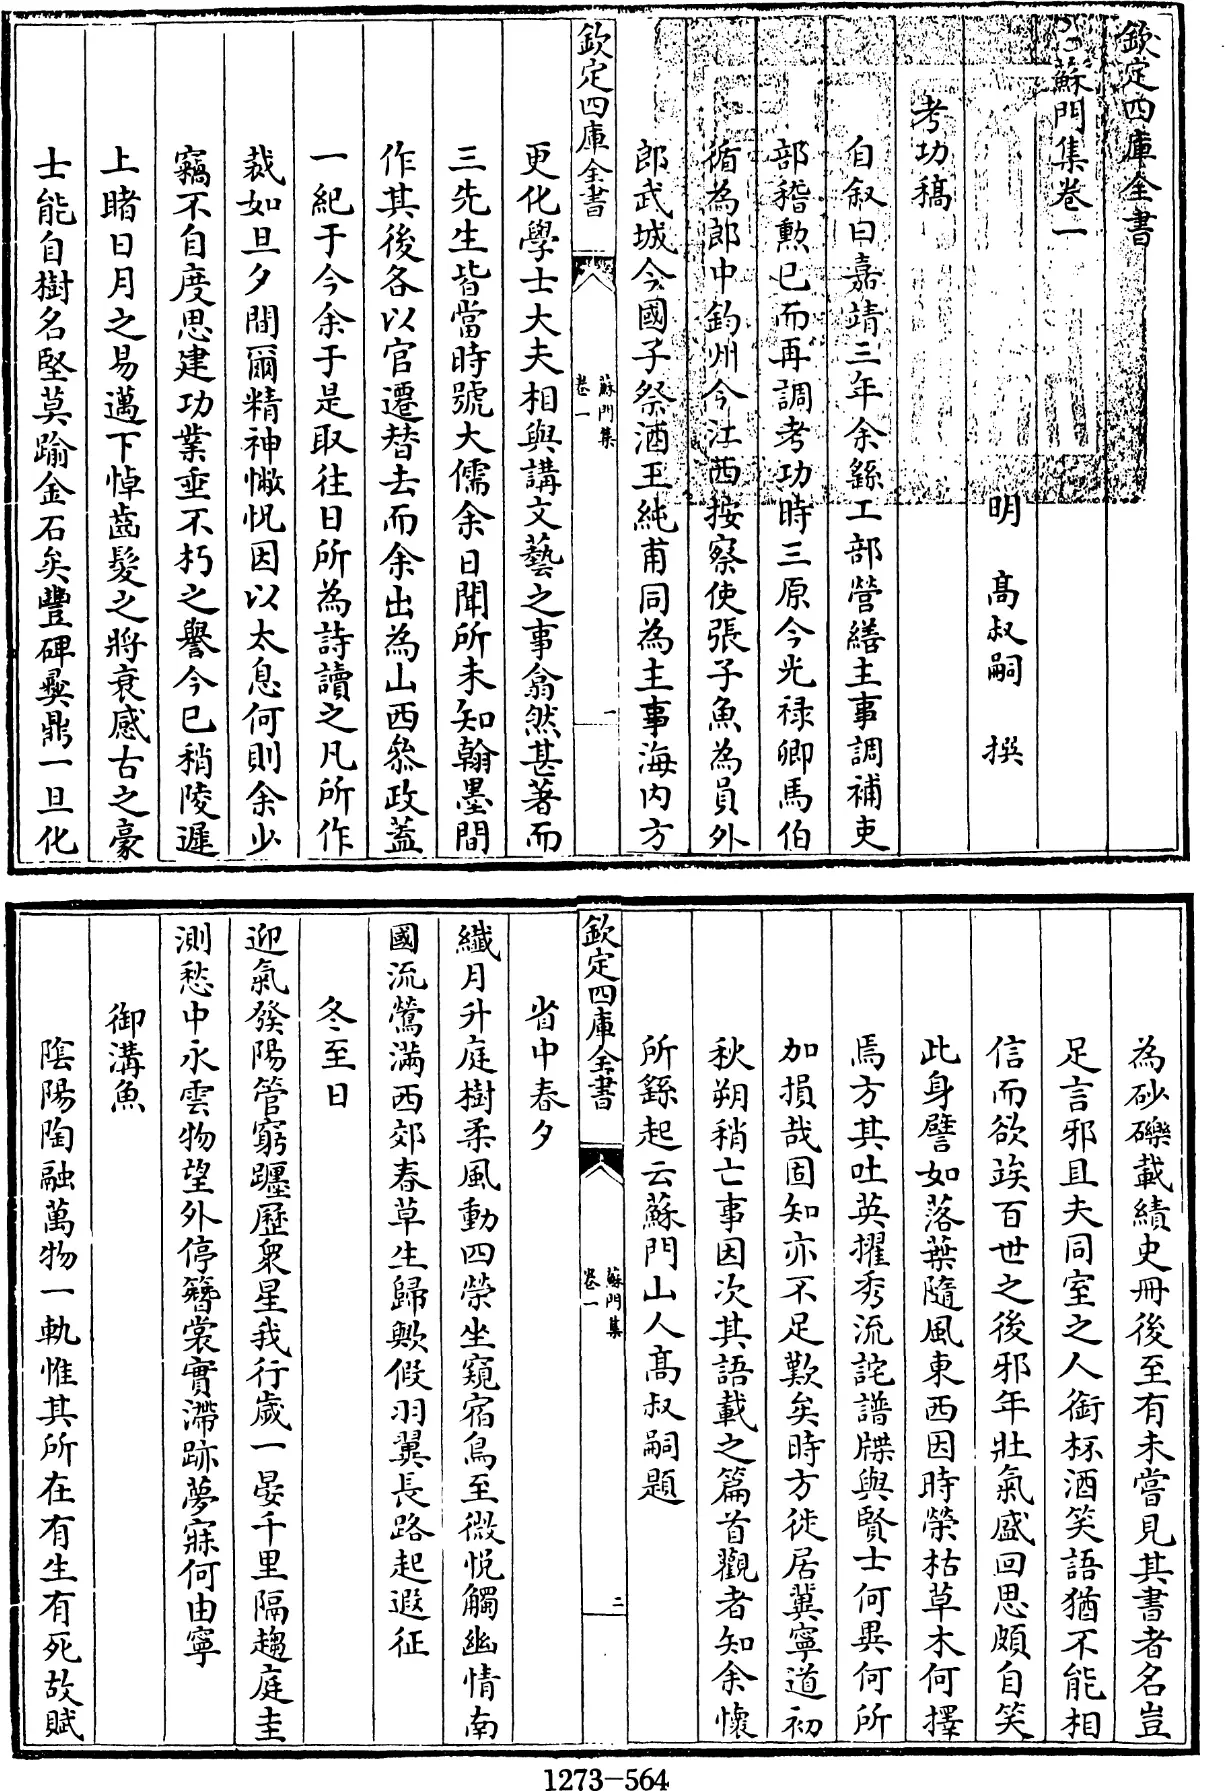 欽定四庫全書
蘇門集卷一
明　高叔嗣　撰
考功稿
自叙曰嘉靖三年余繇工部營繕主事調補吏
部稽勲已而再調考功時三原今光禄卿馬伯
循為郎中鈞州今江西按察使張子魚為員外
郎武城今國子祭酒王純甫同為主事海内方
欽定四庫全書
蘇門集
卷一
一
更化學士大夫相與講文藝之事翕然甚著而
三先生皆當時號大儒余日聞所未知翰墨間
作其後各以官遷替去而余出為山西叅政葢
一紀于今余于是取往日所為詩讀之凡所作
裁如旦夕間爾精神憿怳因以太息何則余少
竊不自度思建功業垂不朽之譽今已稍陵遲
上睹日月之易邁下悼齒髮之將衰感古之豪
士能自樹名堅莫踰金石矣豐碑彛鼎一旦化
為砂礫載績史冊後至有未嘗見其書者名豈
足言邪且夫同室之人銜杯酒笑語猶不能相
信而欲竢百世之後邪年壯氣盛回思頗自笑
此身譬如落葉隨風東西因時榮枯草木何擇
焉方其吐英擢秀流詫譜牒與賢士何異何所
加損哉固知亦不足歎矣時方徙居冀寧道初
秋朔稍亡事因次其語載之篇首觀者知余懷
所繇起云蘇門山人高叔嗣題
欽定四庫全書
蘇門集
卷一
二
省中春夕
纎月升庭樹柔風動四榮坐窺宿鳥至微悦觸幽情南
國流鶯滿西郊春草生歸歟假羽翼長路起遐征
冬至日
迎氣發陽管窮躔歴衆星我行歲一晏千里隔趨庭圭
測愁中永雲物望外停簪裳實滯跡夢寐何由寧
御溝魚
陰陽陶融萬物一軌惟其所在有生有死故賦
1273-564